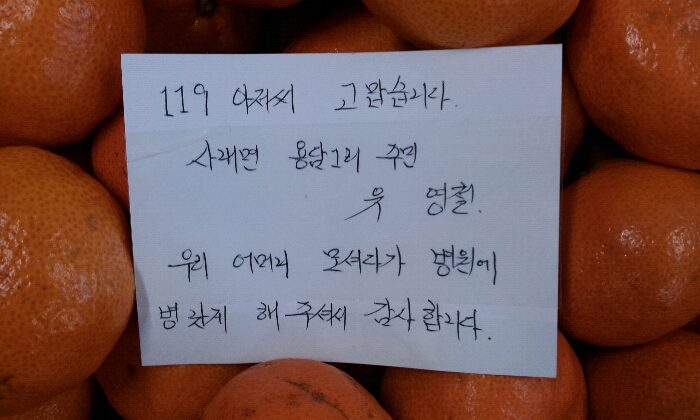 119 아저씨 고맙습니다.
사래면 용담그리 주민
윳 영철.
우리 어머리 모셔다가 병원에
병 랐게 해 주셔서 감사합니다.